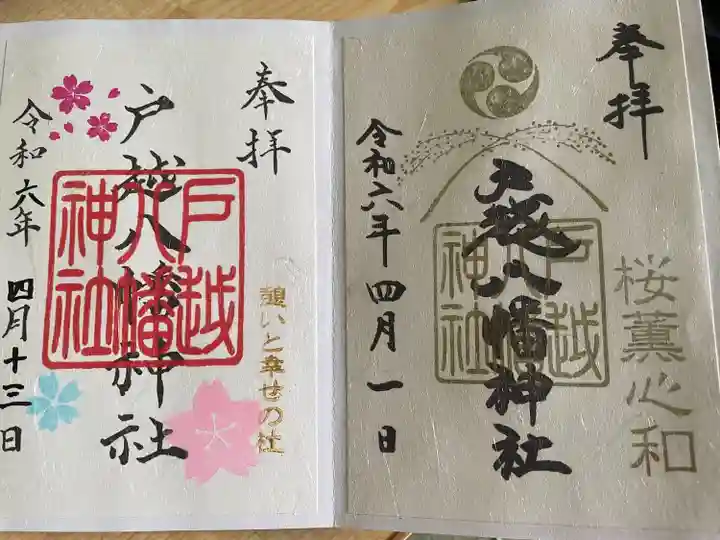 奉拝
戸越八幡神社
戸越
八幡
神社
令和六年 四月十三日
憩いと幸せの社
奉拝
戸越八幡神社
戸越
八幡
神社
令和六年 四月一日
桜薫心和